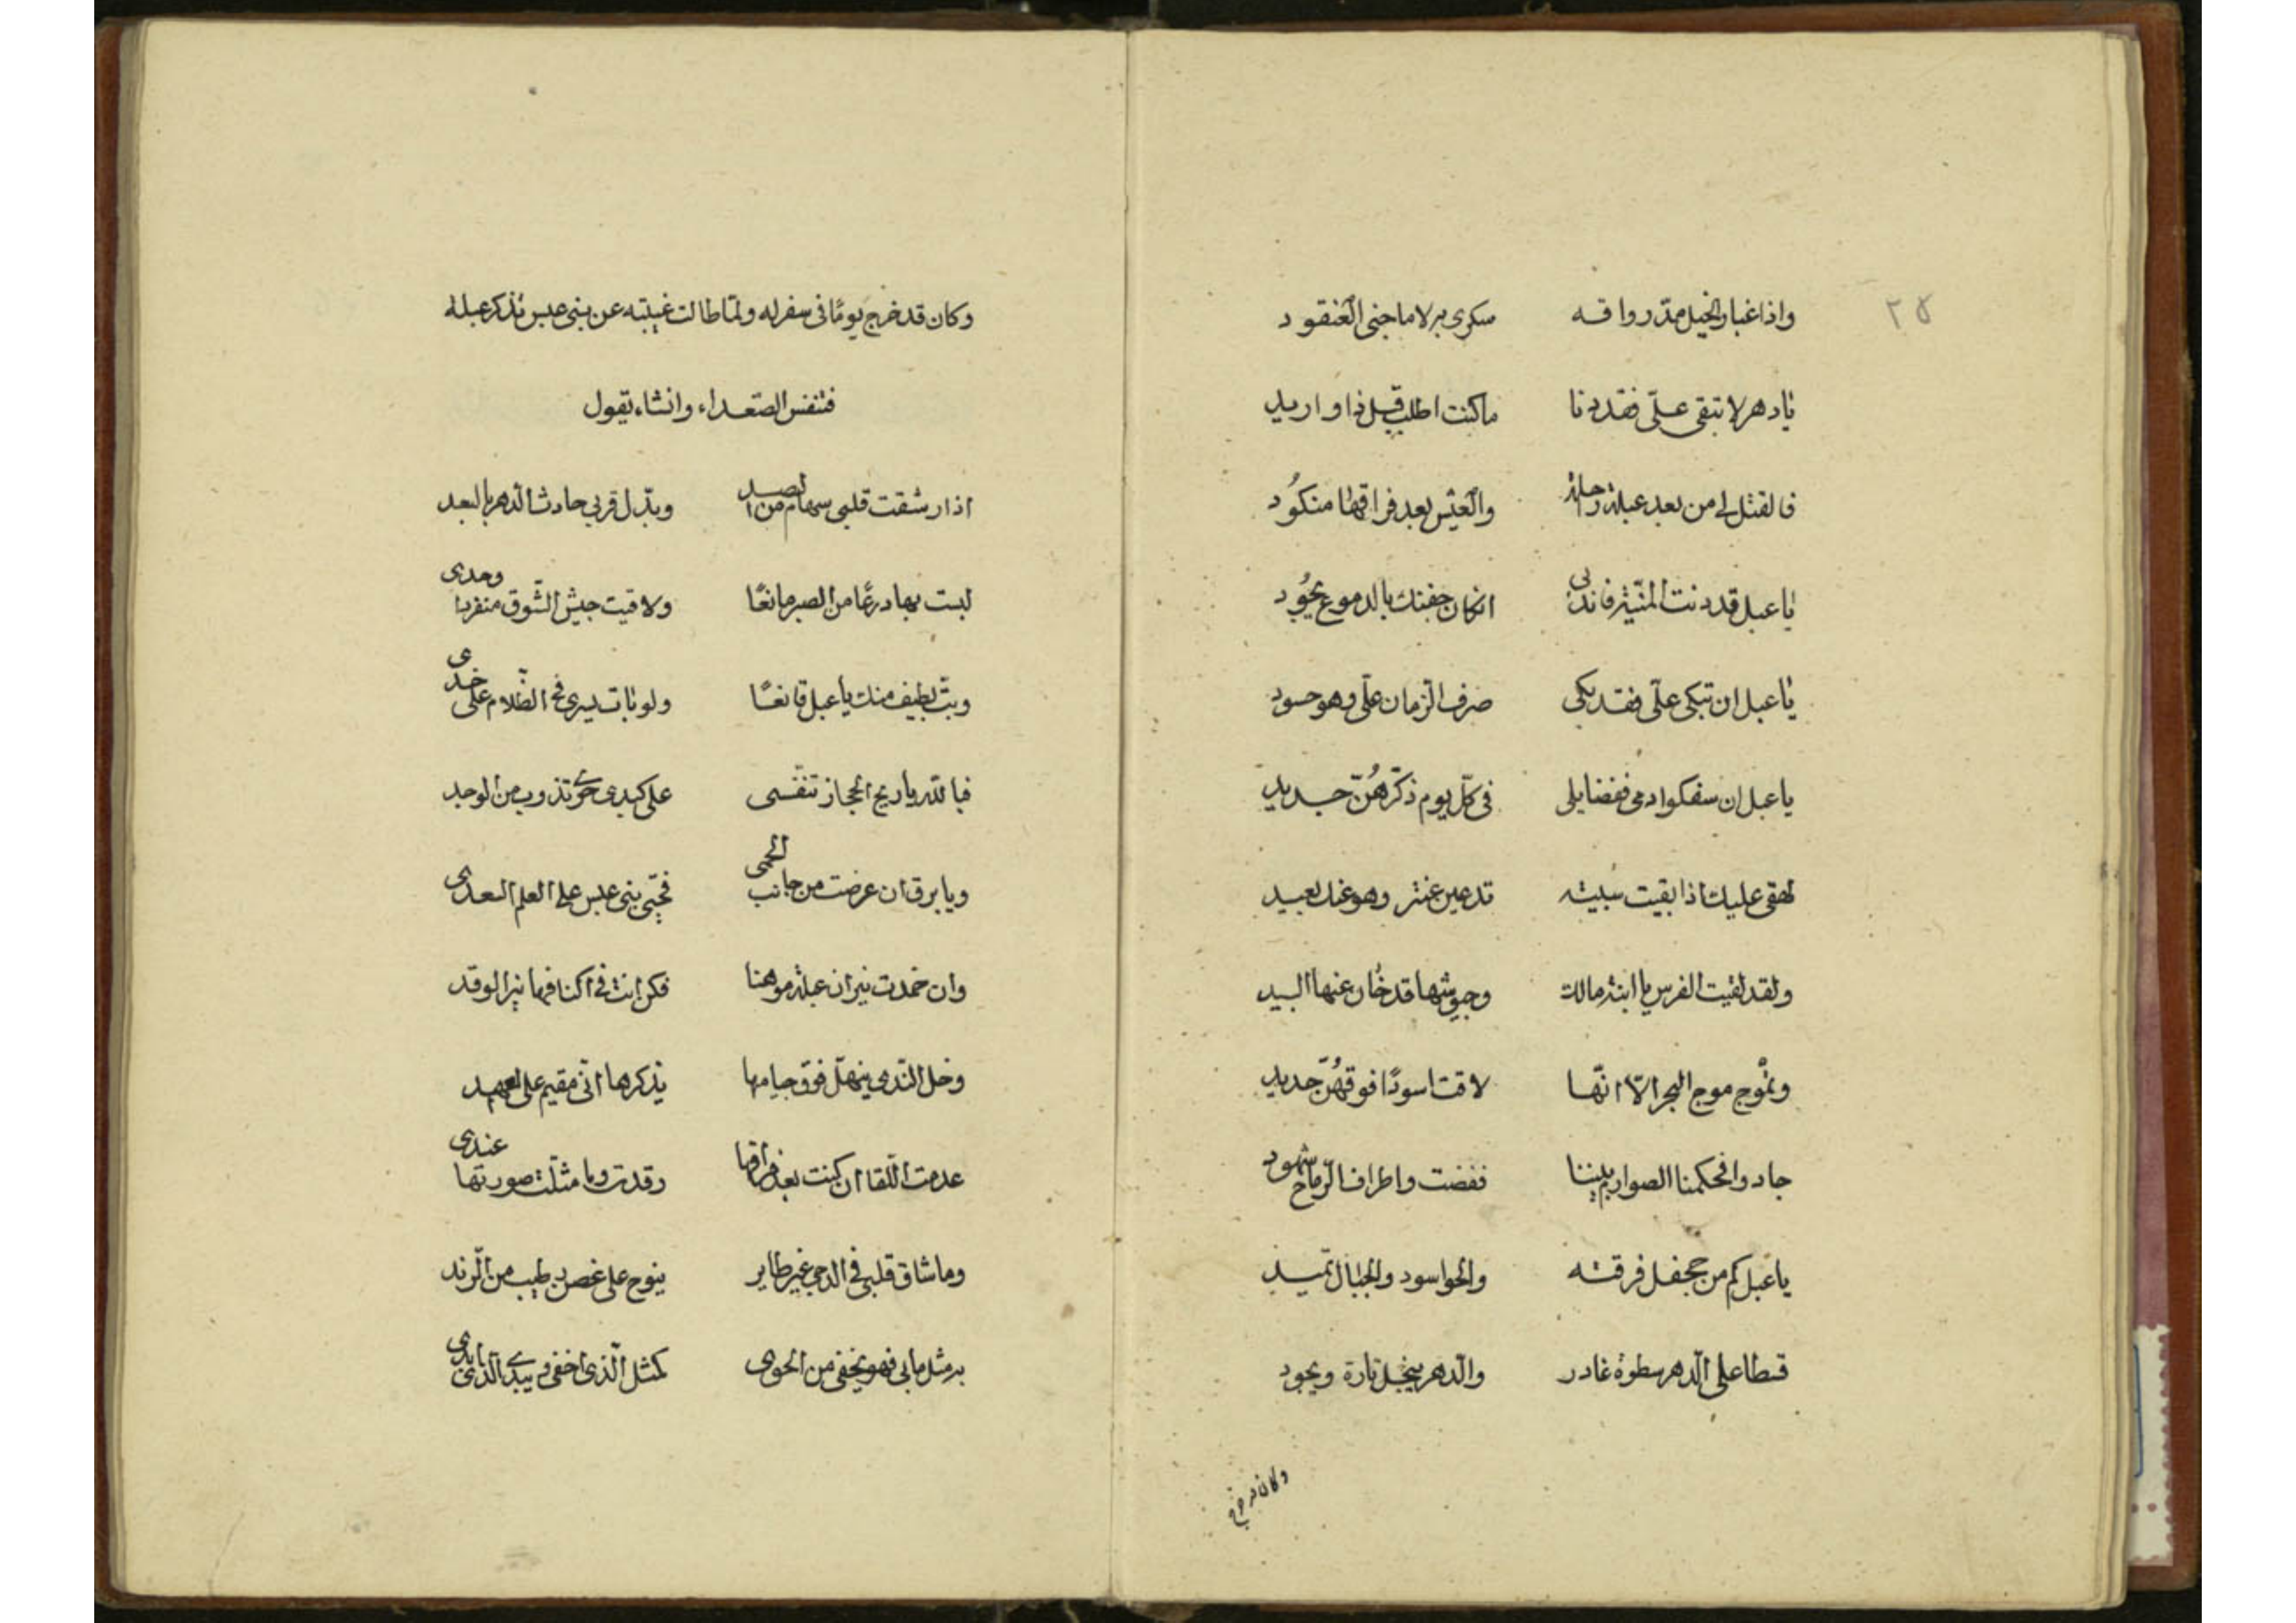 ٢٥
واذا غبار الخيل مدّ رواقه سكرى به لا ما جنى العنقود
يا دهر لا تبقى علىّ فقد دنا ما كنت اطلب قبل ذا واريد
فالقتل لى من بعد عبلة راحة والعيش بعد فراقها منكود
يا عبل قد دنت المنيّة فاندبى ان كان جفنك بالدموع يجود
يا عبل ان تبكى علىّ فقد بكى صرف الزمان علىّ وهو حسود
يا عبل ان سفكوا دمى ففضايلى فى كلّ يوم ذكرهنّ جديد
لهفى عليك اذا بقيت سبيّة تدعين عنتر وهو عنك بعيد
ولقد لقيت الفرس يا ابنة مالك وجيوشها قد ضاق عنها البيد
وتموج موج البحر الّا انّها لاقت اسودًا فوقهنّ حديد
جادوا فحكمنا الصوارم بيننا فقضت واطراف الرماح شهود
يا عبل كم من جحفل فرقته والجو اسود والجبال تميد
فسطا على الدهر سطوة غادر والدهر يبخل تارة ويجود
وكان قد خرج
وكان قد خرج يومًا فى سفر له ولمّا طالت غيبته عن بنى عبس تذكر عبلة
فتنفس الصّعداء وانشاء يقول
اذا رشقت قلبى سهام من الصد وبدّل قربى حادث الدهر بالبعد
لبست بها درعًا من الصبر مانعًا ولاقيت جيش الشّوق منفردا وحدى
وبتّ بطيف منك يا عبل قانعًا ولو بات يسرى فى الظّلام على خدى
فبالله يا ريح الحجاز تنفّسى على كبدى حرّى تذوب من الوجد
ويا برق ان عرضت من جانب الحمى فحيّى بنى عبس على العلم السعدى
وان خمدت نيران عبلة موهنا فكن انت فى اكنافها نير الوقد
وخل النّدى ينهلّ فوق خيامها يذكرها انّى مقيم على العهد
عدمت اللّقا ان كنت بعد فراقها رقدت وما مثّلت صورتها عندى
وما شاق قلبى فى الدجى غير طاير ينوح على غصن رطيب من الرند
به مثل ما بى فهو يخفى من الجوى كمثل الّذى اخفى ويبدى الّذى ابدى